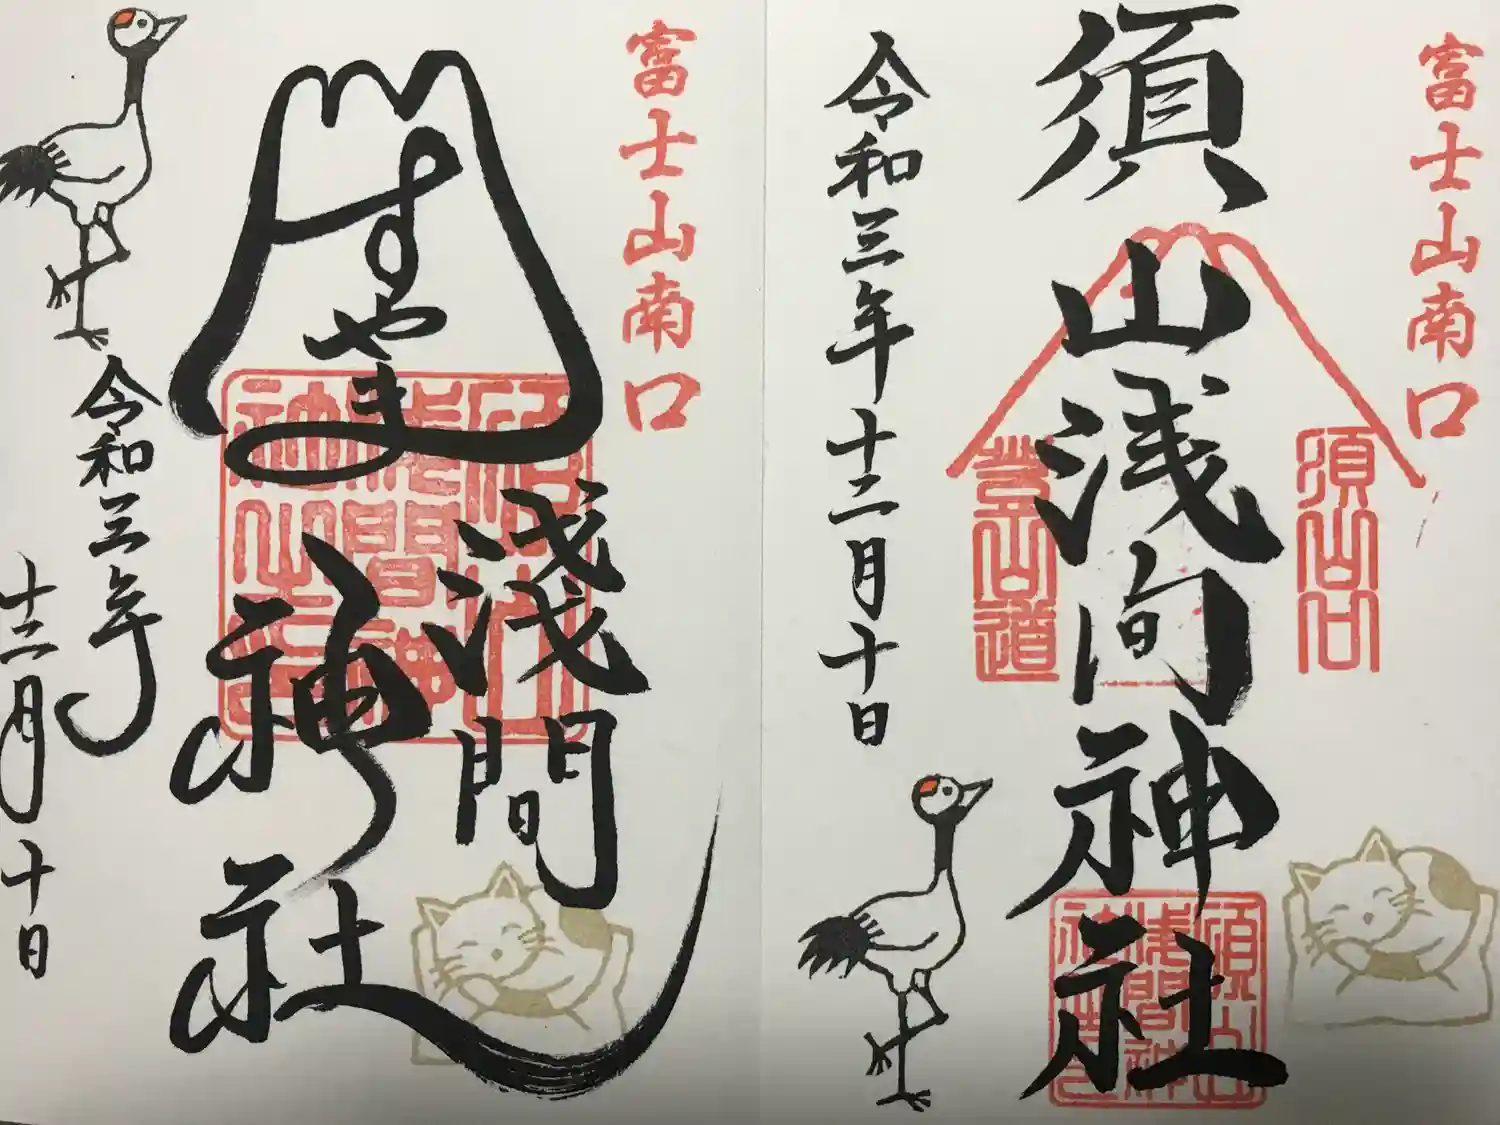 富士山南口
須山浅间神社
須山口
登山道
須山浅間神社
令和三年十二月十日
富士山南口
すやま
淺間
神社
令和三年
十二月十日